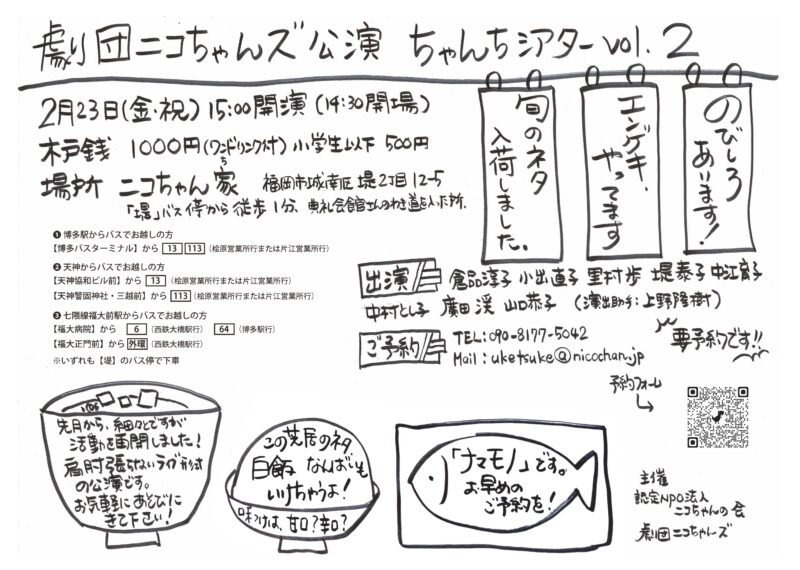 劇団ニコちゃんズ公演 ちゃんちシアターvol.2
2月23日(金・祝) 15:00開演 (14:30開場)
木戸銭 1000円(ワンドリンク付) 小学生以下 500円
場所 ニコちゃん家 福岡市城南区堤2丁目12-5
ち
「堤」バス停から徒歩1分、典礼会館さんのわき道を入った所。
旬のネタ
入荷しました。
エンゲキ、
やってます
のびしろ
あります!
❶ 博多駅からバスでお越しの方
【博多バスターミナル】から 13 113 (桧原営業所行または片江営業所行)
❷ 天神からバスでお越しの方
【天神協和ビル前】から 13 (桧原営業所行または片江営業所行)
【天神警固神社・三越前】から 113 (桧原営業所行または片江営業所行)
❸ 七隈線福大前駅からバスでお越しの方
【福大病院】から 6 (西鉄大橋駅行) 64 (博多駅行)
【福大正門前】から 外環 (西鉄大橋駅行)
※いずれも【堤】のバス停で下車
出演 倉品淳子 小出直子 里村歩 堤泰子 中江育子
中村とし子 廣田渓 山口恭子 (演出助手:上野隆樹)
ご予約 TEL:090-8177-5042
Mail:uketsuke@nicochan.jp
要予約です!!
予約フォーム
先月から、細々とですが
活動を再開しました!
肩肘張らないラフ形式
の公演です。
お気軽にあそびに
きて下さい!
この芝居のネタ
白飯 なんぼでも
いけちゃうよ!
味つけは、甘口?辛口?
「ナマモノ」です。
お早めの
ご予約を!
主催
認定NPO法人
ニコちゃんの会
劇団ニコちゃんズ